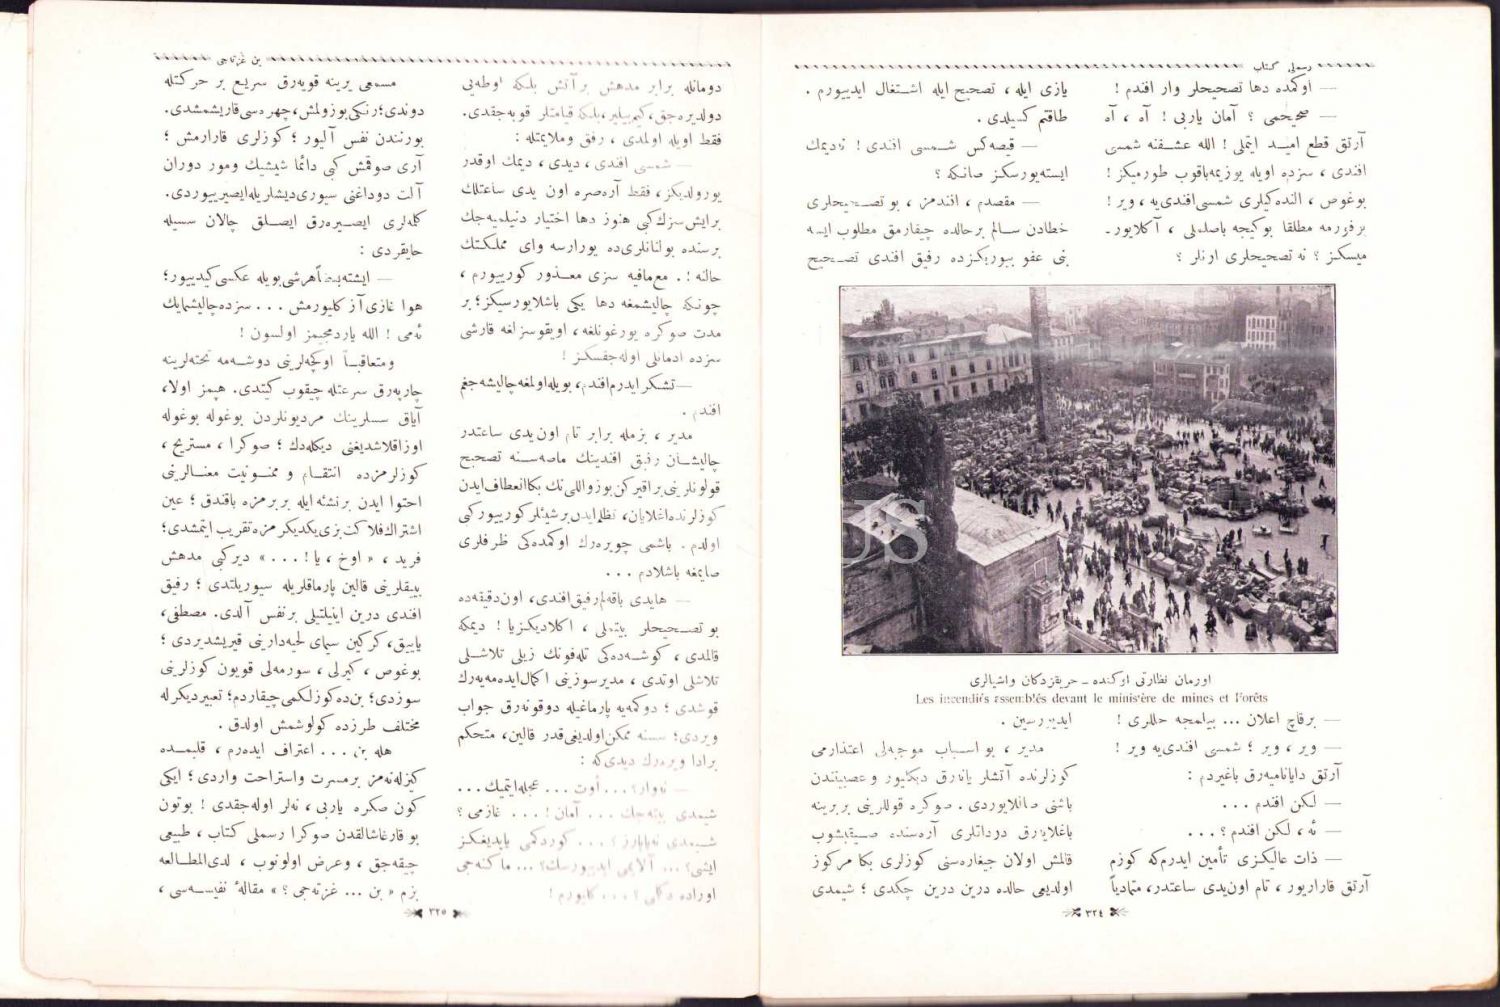 رسملی کتاب
— اوکمده دها تصحیحلر وار افندم !
— صحیحمی ؟ آمان یاربی ! آه ، آه
آرتق قطع امید ایتملی ! الله عشقنه شمسی
افندی ، سزده اویله یوزیمه باقوب طورمیکز !
بوغوص ، النده کیلری شمسی افندی یه ، ویر !
برفورمه مطلقا بوکیجه باصلملی ، آکلایور ـ
میسکز ؟ نه تصحیحلری اونلر ؟
یازی ایله ، تصحیح ایله اشتغال ایدییورم .
طاقتم کسیلدی .
— قیصه کس شمسی افندی ! نه دیمك
ایسته یورسکز صانکه ؟
— مقصدم ، افندمز ، بو تصحیحلری
خطادن سالم برحالده چیقارمق مطلوب ایسه
بنی عفو بیوریکزده رفیق افندی تصحیح
اورمان نظارتی اوکنده ـ حریقزدکان واشیالری
Les incendiés assemblés devant le ministère de mines et Forêts
— برقاچ اعلان ... بیلمجه حللری !
— ویر ، ویر ؛ شمسی افندی یه ویر !
آرتق دایانامیه رق باغیردم :
— لکن افندم ...
— ئه ، لکن افندم ؟ ...
— ذات عالیکزی تأمین ایدرم که کوزم
آرتق قاراریور ، تام اون یدی ساعتدر ، متمادیاً
ایدیورسین .
مدیر ، بو اسباب موجبه لی اعتذارمی
کوزلرنده آتشلر یانه رق دیکلیور و عصبیتندن
باشنی صاللایوردی . صوکره قوللرینی بربرینه
باغلایه رق دوداقلری آره سنده صیقیشوب
قالمش اولان جیغاره سنی کوزلری بکا مرکوز
اولدیغی حالده درین درین چکدی ؛ شیمدی
٣٢٤
بن غزته جی
دومانله برابر مدهش بر آتش بلکه اوطه یی
دولدیره جق ، کیم بیلیر ، بلکه قیامتلر قوپه جقدی.
فقط اویله اولمدی ، رفق وملایمتله :
— شمسی افندی ، دیدی ، دیمك اوقدر
یورولدیکز ، فقط آره صره اون یدی ساعتلك
برایش سزك کبی هنوز دها اختیار دینیلمیه جك
برسنده بولنانلری ده یورارسه وای مملکتك
حالنه ! . مع مافیه سزی معذور کورییورم ،
چونکه چالیشمغه دها یکی باشلایورسیکز ؛ بر
مدت صوکره یورغونلغه ، اویقوسزلغه قارشی
سزده ادمانلی اوله جقسکز !
— تشکر ایدرم افندم ، بویله اولمغه چالیشه جغم
افندم .
مدیر ، بزمله برابر تام اون یدی ساعتدر
چالیشان رفیق افندینك ماصه سنه تصحیح
قولونلرینی براقیرکن بو زواللی نك بکا انعطاف ایدن
کوزلرنده اغلایان ، تظلم ایدن برشیئلر کورییورکبی
اولدم . باشمی چویره رك اوکمده کی ظرفلری
صایمغه باشلادم ...
— هایدی باقه لم رفیق افندی ، اون دقیقه ده
بو تصحیحلر بیتملی ، اکلادیکزیا ! دیمکه
قالمدی ، کوشه ده کی تله فونك زیلی تلاشلی
تلاشلی اوتدی ، مدیر سوزینی اکمال ایده مه یه رك
قوشدی ؛ دوکمه یه پارماغیله دوقونه رق جواب
ویردی ؛ سسنه ممکن اولدیغی قدر قالین ، متحکم
برادا ویره رك دیدی که :
— نه وار ؟ ... أوت ... عجله ایتمیك ...
شیمدی بیته جك ... آمان ! ... غازمی ؟
شیمدی نه یاپارز ؟ ... کوردکمی یاپدیغکز
ایشی ؟ ... آلایمی ایدییورسك ؟ ... ماکنه جی
اوراده دکلمی ؟ ... کلیورم !
مسمعی یرینه قویه رق سریع بر حرکتله
دوندی ؛ رنکی بوزولمش ، چهره سی قاریشمشدی.
بورنندن نفس آلیور ؛ کوزلری قارارمش ؛
آری صوقمش کبی دائما شیشیك ومور دوران
آلت دوداغنی سیوری دیشلریله ایصیرییوردی.
کلمه لری ایصیره رق ایصلق چالان سسیله
حایقردی :
— ایشته بعضاً هرشی بویله عکسی کیدییور ؛
هوا غازی آز کلیورمش ... سزده چالیشمایك
ئه می ! الله یاردمجیمز اولسون !
ومتعاقباً اوکچه لرینی دوشه مه تخته لرینه
چارپه رق سرعتله چیقوب کیتدی. هپمز اولا،
آیاق سسلرینك مردیونلردن بوغوله بوغوله
اوزاقلاشدیغنی دیکله دك ؛ صوکرا ، مستریح ،
کوزلرمزده انتقام و ممنونیت معنالرینی
احتوا ایدن برنشئه ایله بربرمزه باقندق ؛ عین
اشتراك فلاکت بزی یکدیکرمزه تقریب ایتمشدی ؛
فرید ، « اوخ ، یا ! ... » دیرکبی مدهش
بییقلرینی قالین پارماقلریله سیوریلتدی ؛ رفیق
افندی درین اینیلتیلی برنفس آلدی. مصطفی ،
یاپیق ، کرکین سیمای لحیه دارینی قیریشدیردی ؛
بوغوص ، کیرلی ، سورمه لی قویون کوزلرینی
سوزدی ؛ بن ده کوزلکمی چیقاردم ؛ تعبیر دیکرله
مختلف طرزده کولوشمش اولدق .
هله بن ... اعتراف ایده رم ، قلبمده
کیزله نه مز برمسرت واستراحت واردی ؛ ایکی
کون صکره یاربی ، نه لر اوله جقدی ! بوتون
بو قارغاشالقدن صوکرا رسملی کتاب ، طبیعی
چیقه جق ، وعرض اولونوب ، لدی المطالعه
بزم « بن ... غزته جی ؟ » مقالهٔ نفیسه سی ،
٣٢٥
JS